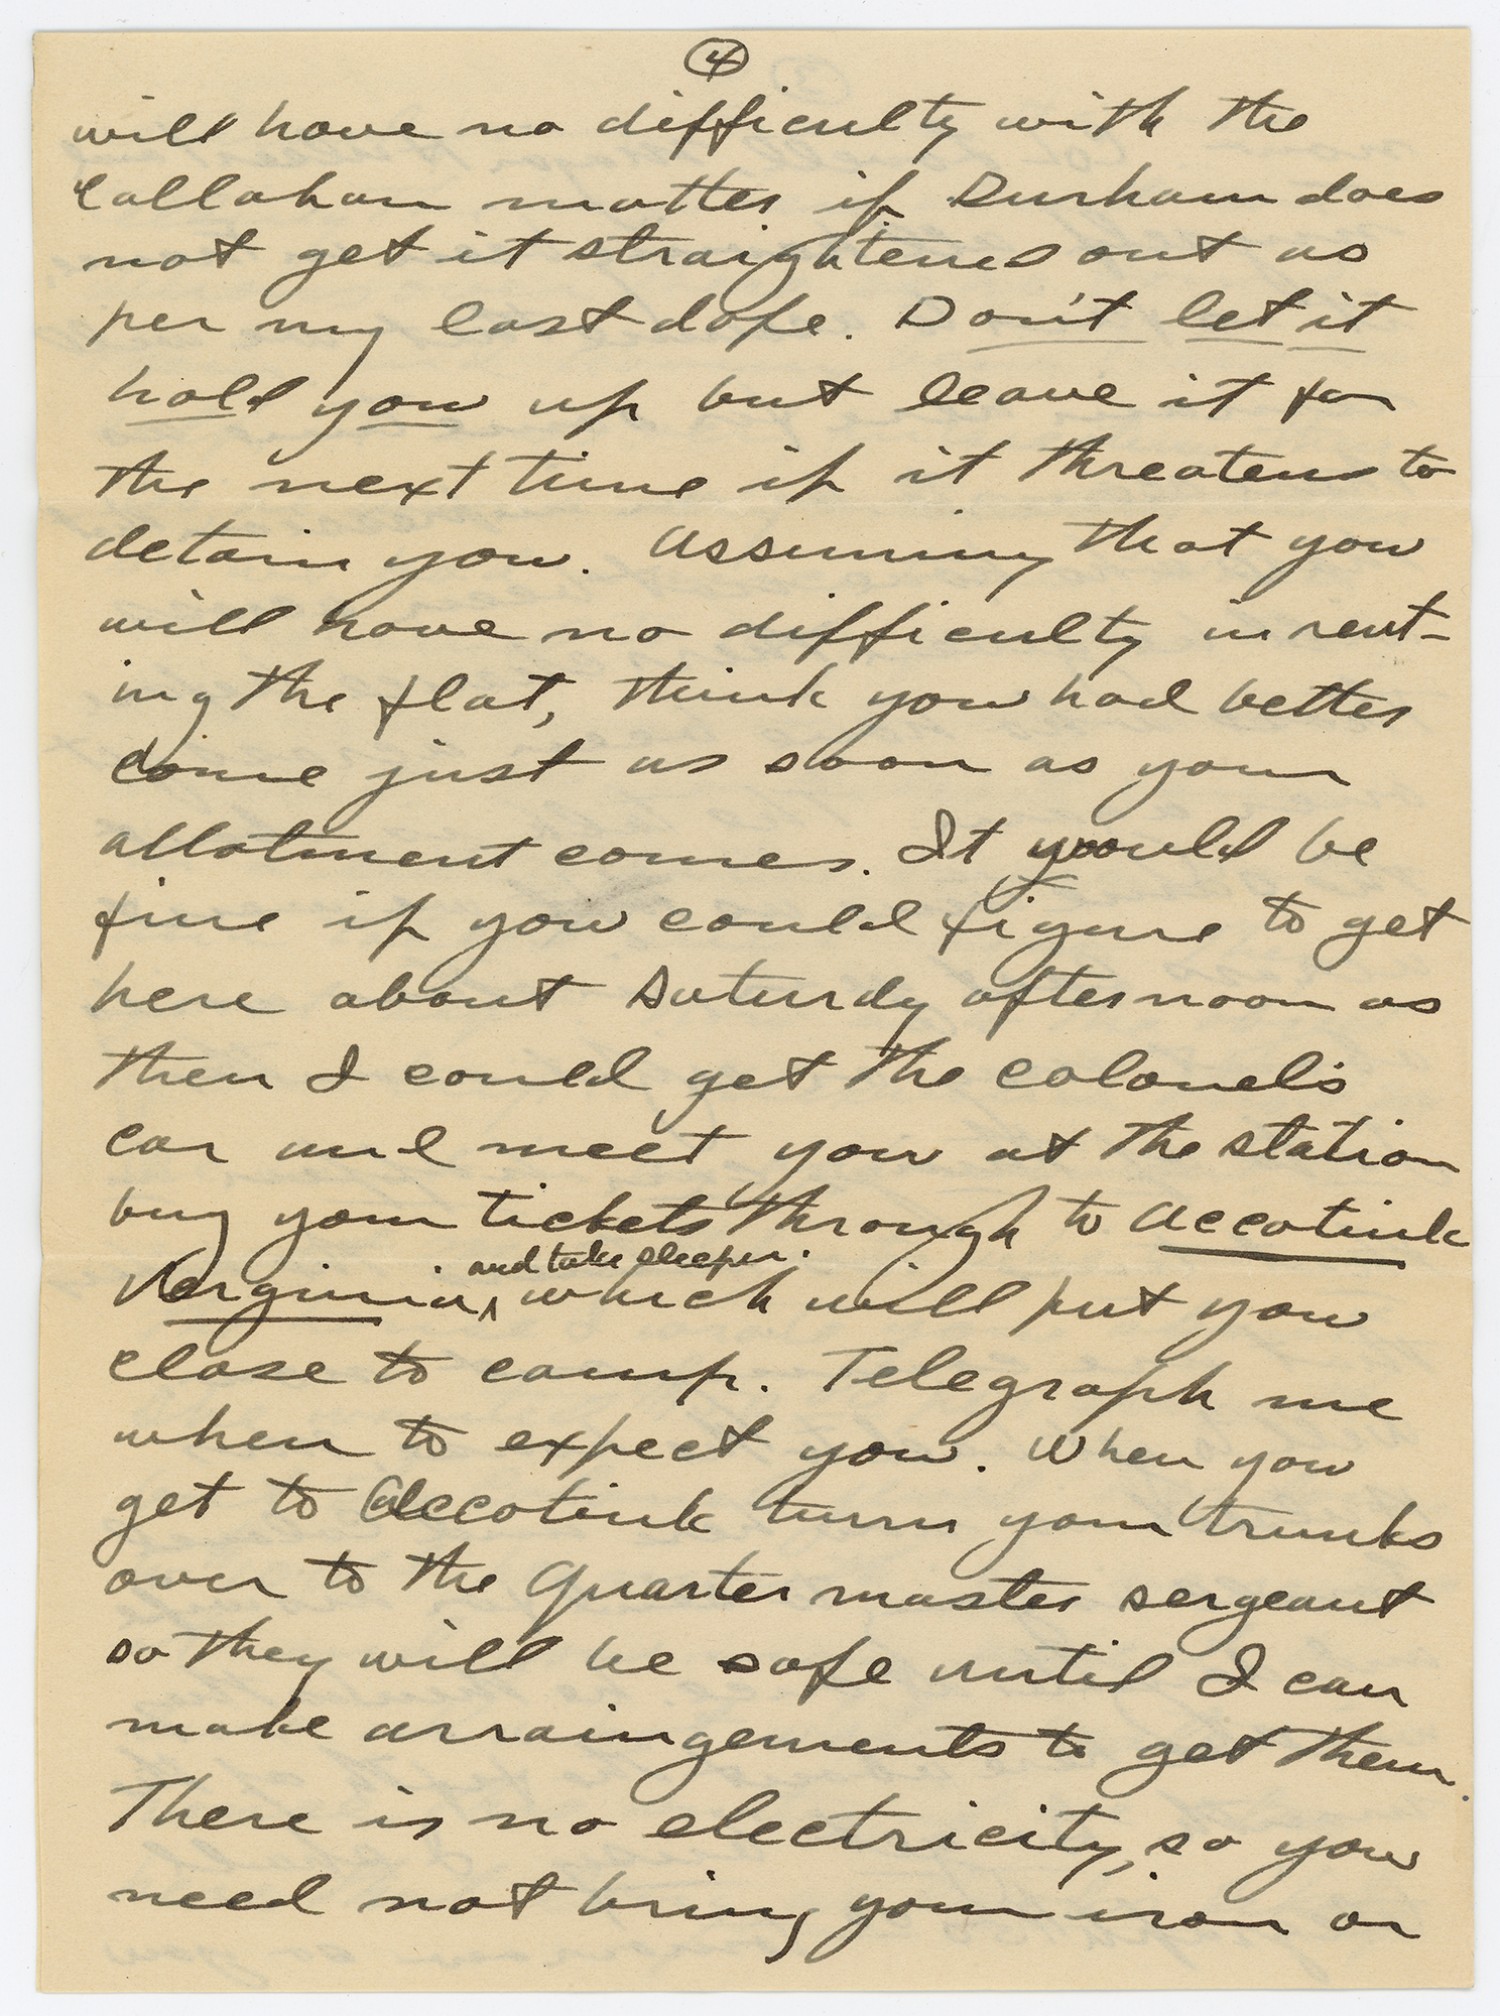 4
will have no difficulty with the
Callahan matter if Durham does
not get it straightened out as
per my last dope. Don't let it
hold you up but leave it for
the next time if it threatens to
detain you. Assuming that you
will have no difficulty in rent-
ing the flat, think you had better
come just as soon as your
allotment comes. It would be
fine if you could figure to get
here about Saturdy afternoon as
then I could get the colonel's
car and meet you at the station
buy your tickets through to Accotink
and take sleeper.
Virginia, which will put you
close to camp. Telegraph me
when to expect you. When you
get to Accotink turn your trunks
over to the Quartermaster sergeant
so they will be safe until I can
make arraingements to get them.
There is no electricity, so you
need not bring your iron or